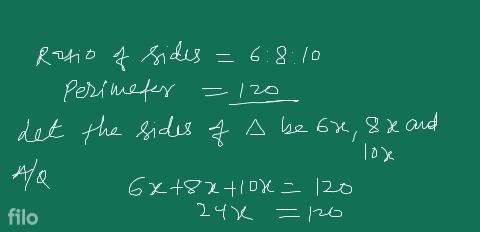 Ratio of sides = 6:8:10
Perimeter = 120
Let the sides of Δ be 6x, 8x and
10x
A/Q
6x+8x+10x = 120
24x = 120
filo